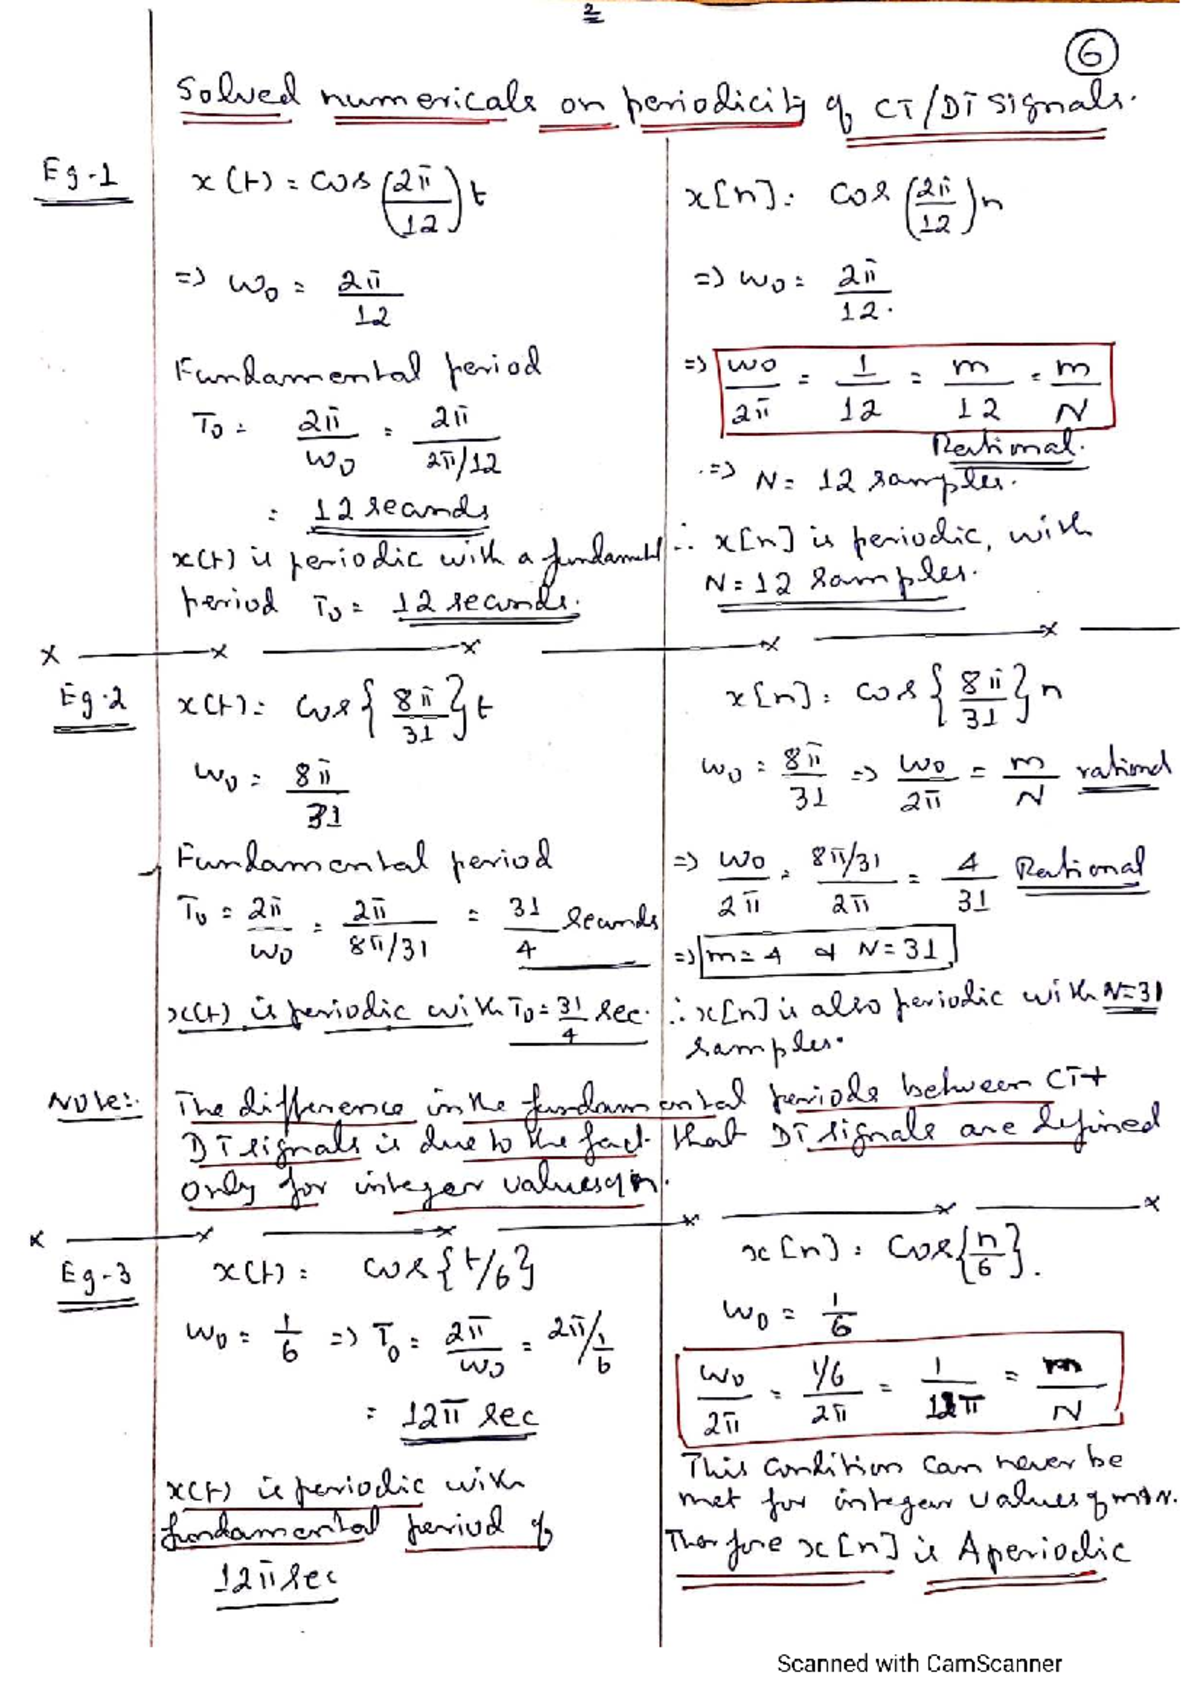 2
6
Solved numericals on periodicity of CT/DT signals.
Eg-1
x(t) = cos(2π/12)t
⇒ ω0 = 2π/12
Fundamental period
T0 = 2π/ω0 = 2π/(2π/12)
= 12 seconds
x(t) is periodic with a fundamental
period T0 = 12 seconds.
x[n] = cos(2π/12)n
⇒ ω0 = 2π/12.
⇒ ω0/2π = 1/12 = m/12 = m/N
Rational.
⇒ N = 12 samples.
∴ x[n] is periodic, with
N = 12 samples.
Eg-2
x(t) = cos{8π/31}t
ω0 = 8π/31
Fundamental period
T0 = 2π/ω0 = 2π/(8π/31) = 31/4 seconds
x(t) is periodic with T0 = 31/4 sec.
x[n] = cos{8π/31}n
ω0 = 8π/31 ⇒ ω0/2π = m/N rational
⇒ ω0/2π = (8π/31)/2π = 4/31 Rational
⇒ m = 4 & N = 31
∴ x[n] is also periodic with N=31
samples.
Note:- The difference in the fundamental periods between CT +
DT signals is due to the fact that DT signals are defined
only for integer values of n.
Eg-3
x(t) = cos{t/6}
ω0 = 1/6 ⇒ T0 = 2π/ω0 = 2π/(1/6)
= 12π sec
x(t) is periodic with
fundamental period of
12π sec
x[n] = cos{n/6}.
ω0 = 1/6
ω0/2π = (1/6)/2π = 1/12π = m/N
This condition can never be
met for integer values of m + N.
Therefore x[n] is Aperiodic
Scanned with CamScanner